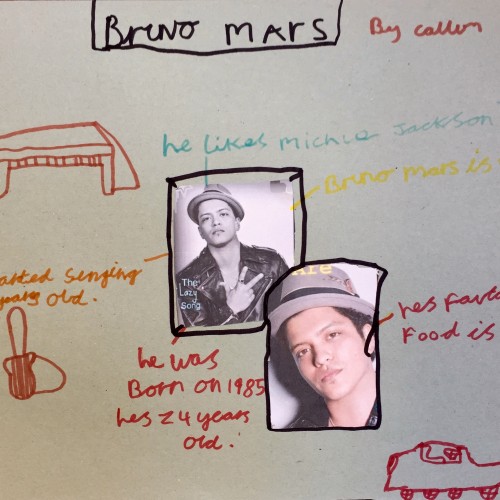 Bruno MARS
By callum
he likes Michle Jackson
Bruno Mars is
arted Singing
years old.
The
Lazy
Song
are
hes Favo
Food is
he was
Born on 1985
hes 24 years
old.